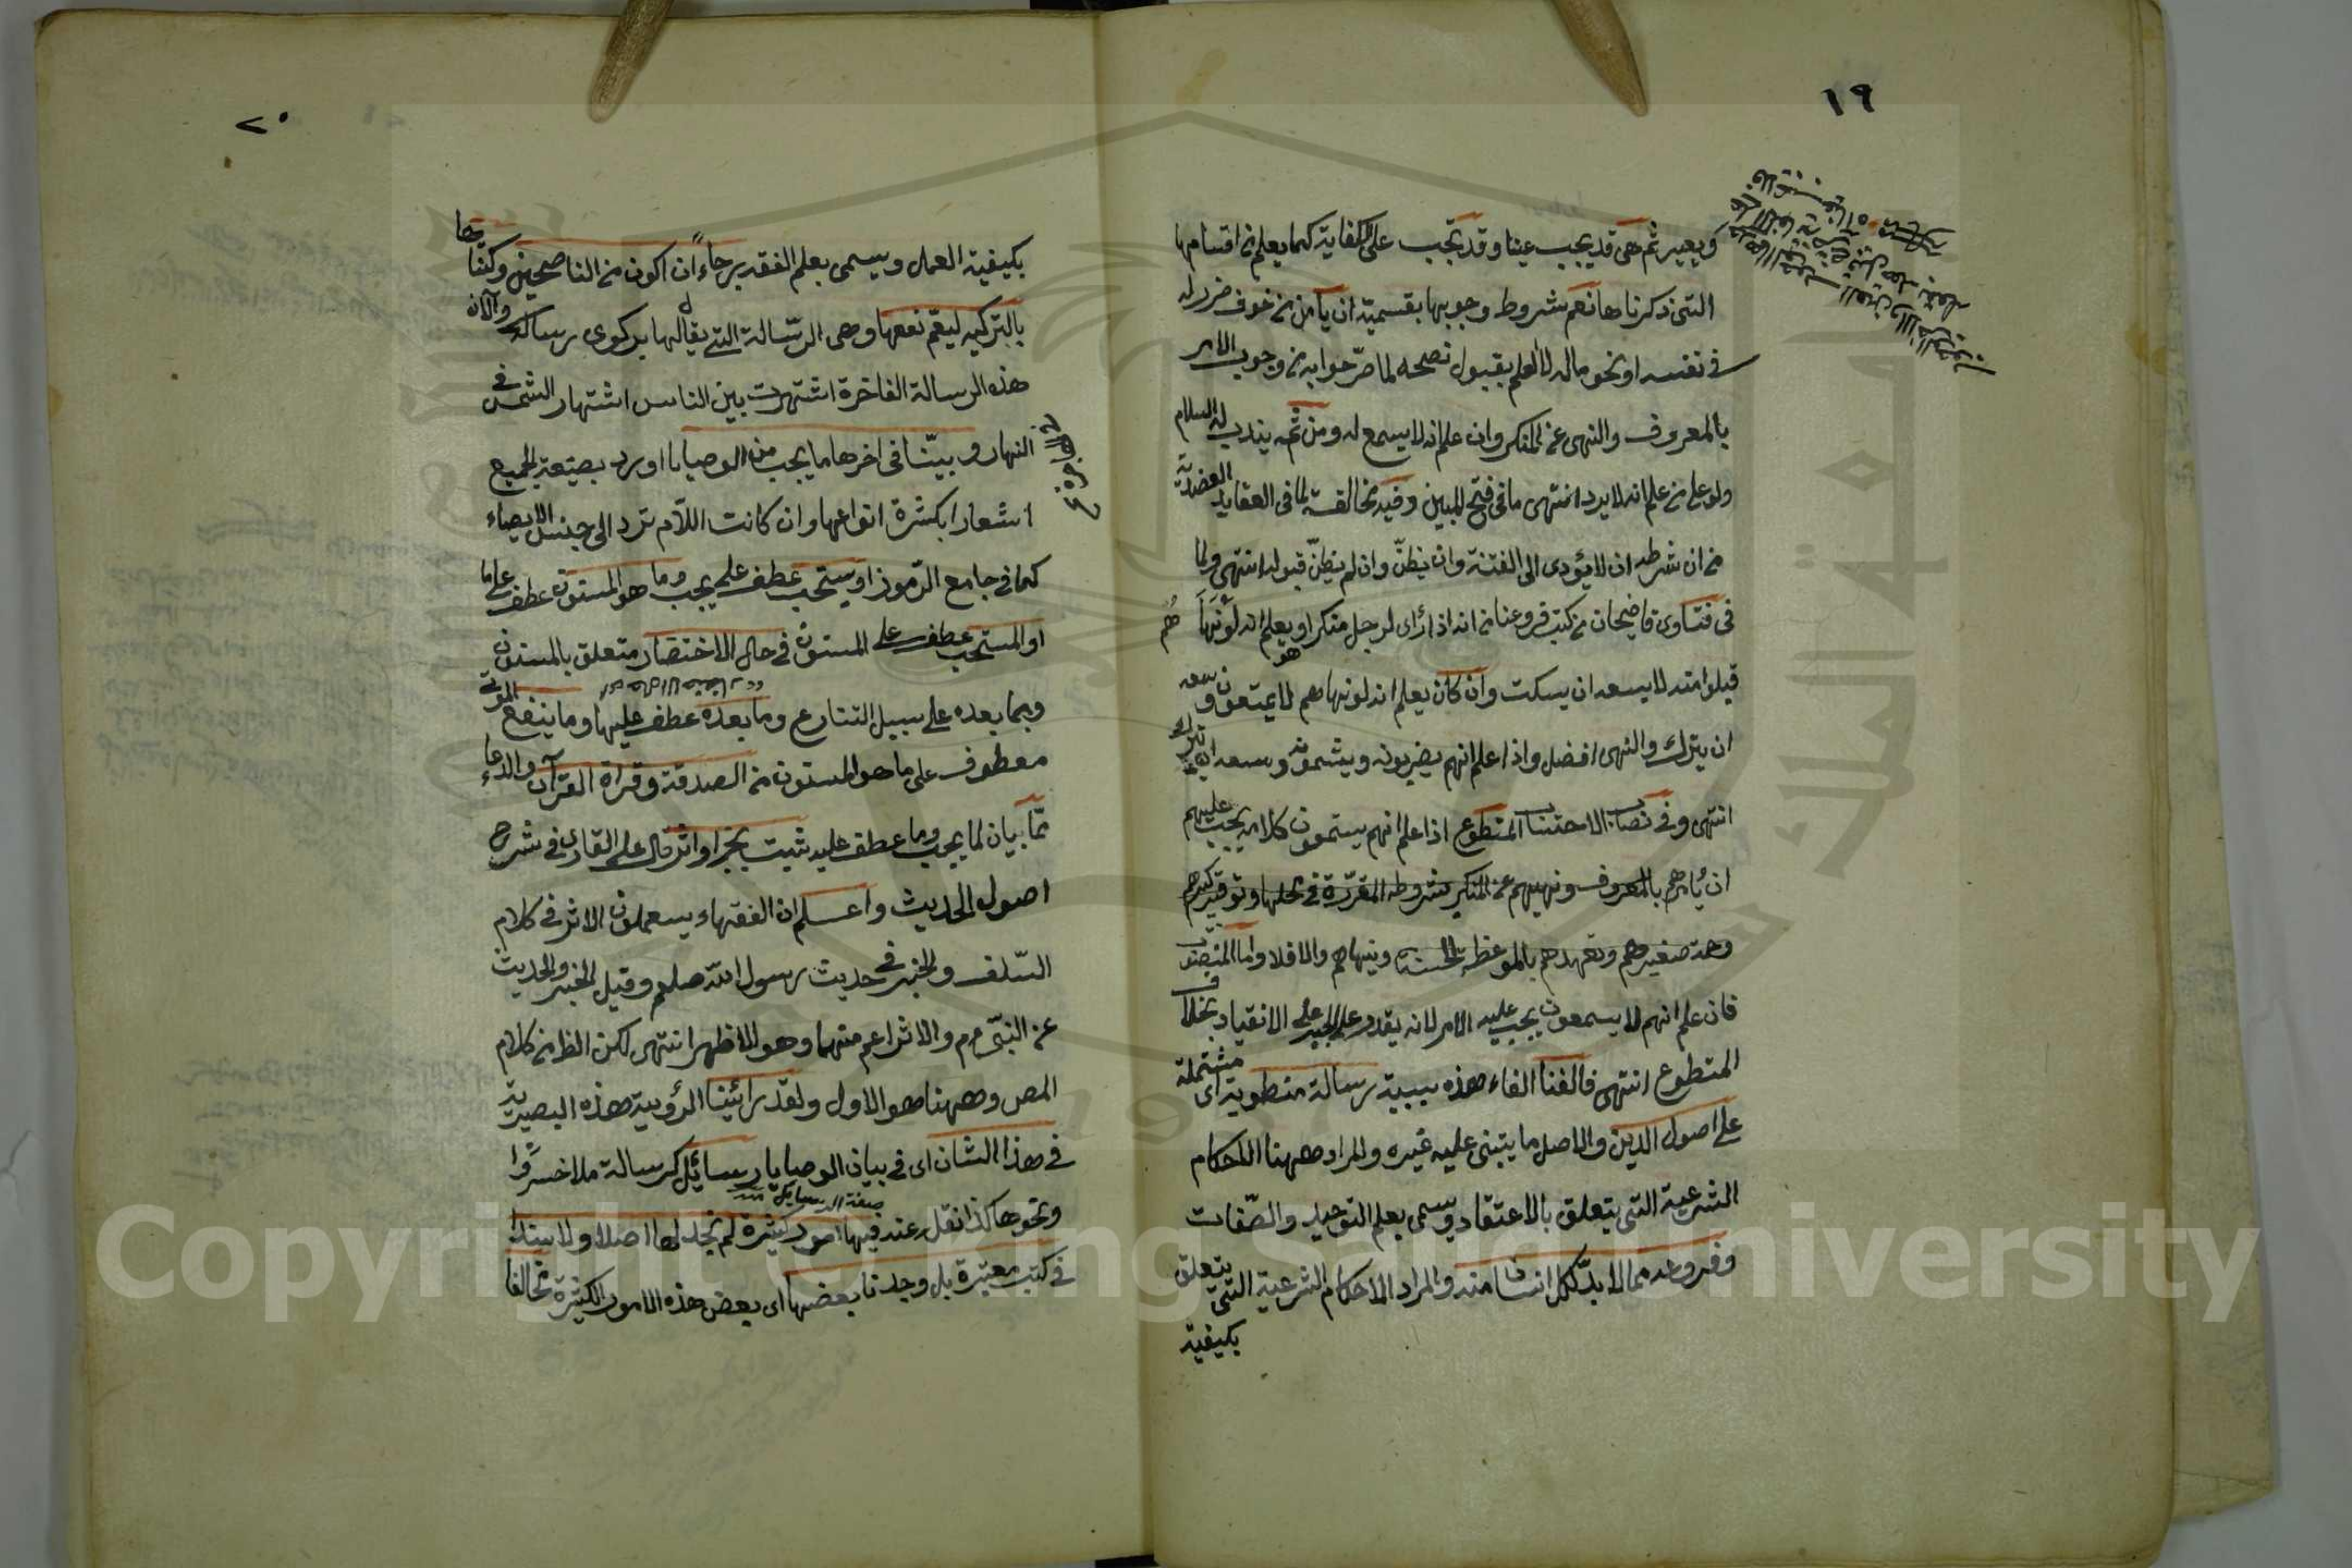 ١٩
ويعير ثم هى قد يجب عينا وقد تجب على الكفاية كما يعلم من اقسامها
التى ذكرناها نعم شروط وجوبها بقسميه ان يأمن من خوف ضرر له
فى نفسه او نحو ماله لا العلم بقبول نصحه لما صرّحوا به من وجوب الامر
بالمعروف والنهى عن المنكر وان علم انه لا يسمع له ومن ثمه يندب له السلام
ولو على من علم انه لا يرد انتهى ما فى فتح المبين وفيه مخالفة لما فى العقايد العضدية
من ان شرطه ان لا يؤدى الى الفتنة وان يظنّ وان لم يظنّ قبوله انتهى ولما
فى فتاوى قاضيخان من كتب فروعنا من انه اذا رأى لرجل منكرا ويعلم انه لو نهاهم
قبلوا منه لا يسعه ان يسكت وان كان يعلم انه لو نهاهم لا يمتعون وسعه
ان يترك والنهى افضل واذا علم انهم يضربونه ويشتمونه وسعه ان يترك
انتهى وفى نصاب الاحتساب المتطوع اذا علم انهم يستمعون كلامه يجب عليهم
ان يأمرهم بالمعروف ونهيهم عن المنكر بشروطه المقرّرة فى محلها وتوقير كبيرهم
صغيرهم وتعهدهم بالموعظة الحسنة وينهاهم والا فلا واما المنصوب
فان علم انهم لا يسمعون يجب عليه الامر لانه يقدر على الجبر على الانقياد بخلاف
المتطوع انتهى فالفنا الفاء هذه سببية رسالة منطوية اى مشتملة
على اصول الدين والاصل ما يبتنى عليه غيره والمراد ههنا الاحكام
الشرعية التى يتعلق بالاعتقاد ويسمى بعلم التوحيد والصّفات
وفروعه مما لا بدّ لكل انسان منه والمراد الاحكام الشرعية التى يتعلق
بكيفية
٢٠
بكيفية العمل ويسمى بعلم الفقه برجاء ان اكون من الناصحين وكتبناها
بالتركيه ليعمّ نفعها وهى الرّسالة التى يقال لها بركوى رساله والآن
هذه الرسالة الفاخرة اشتهرت بين الناس اشتهار الشمس فى
النهار وبيّنا فى اخرها ما يجب من الوصايا اورد بصيغة الجميع
اشعارا بكثرة انواعها وان كانت اللّام ترد الى جنس الايصاء
كما فى جامع الرّموز او يستحب عطف على يجب وما هو المسنون عطف على ما
او المستحب عطف على المسنون فى حال الاختضار متعلق بالمسنون
وبما بعده على سبيل التنازع وما بعده عطف عليها وما ينفع الموتى
معطوف على ما هو المسنون من الصدقة وقراة القرآن والدعاء
ممّا بيان لما يجب وما عطف عليه ثبت بخبر او اثر قال على القارى فى شرح
اصول الحديث واعلم ان الفقهاء يستعملون الاثر فى كلام
السّلف والخبر فى حديث رسول اللّه صلعم وقيل الخبر والحديث
عن النبىّ عم والاثر اعم منهما وهو الاظهر انتهى لكن الظ من كلام
المص وههنا هو الاول ولقد رائينا الرؤية هذه البصرية
فى هذا الشان اى فى بيان الوصايا رسائل كرسالة ملا خسرو
ونحوها كذا نقل عنه فيها امور كثيرة لم نجد لها اصلا ولا سندا
صفة الرسائل منه
فى كتب معتبرة بل وجدنا بعضها اى بعض هذه الامور الكثيرة مخالفا
Copyright © King Saud University